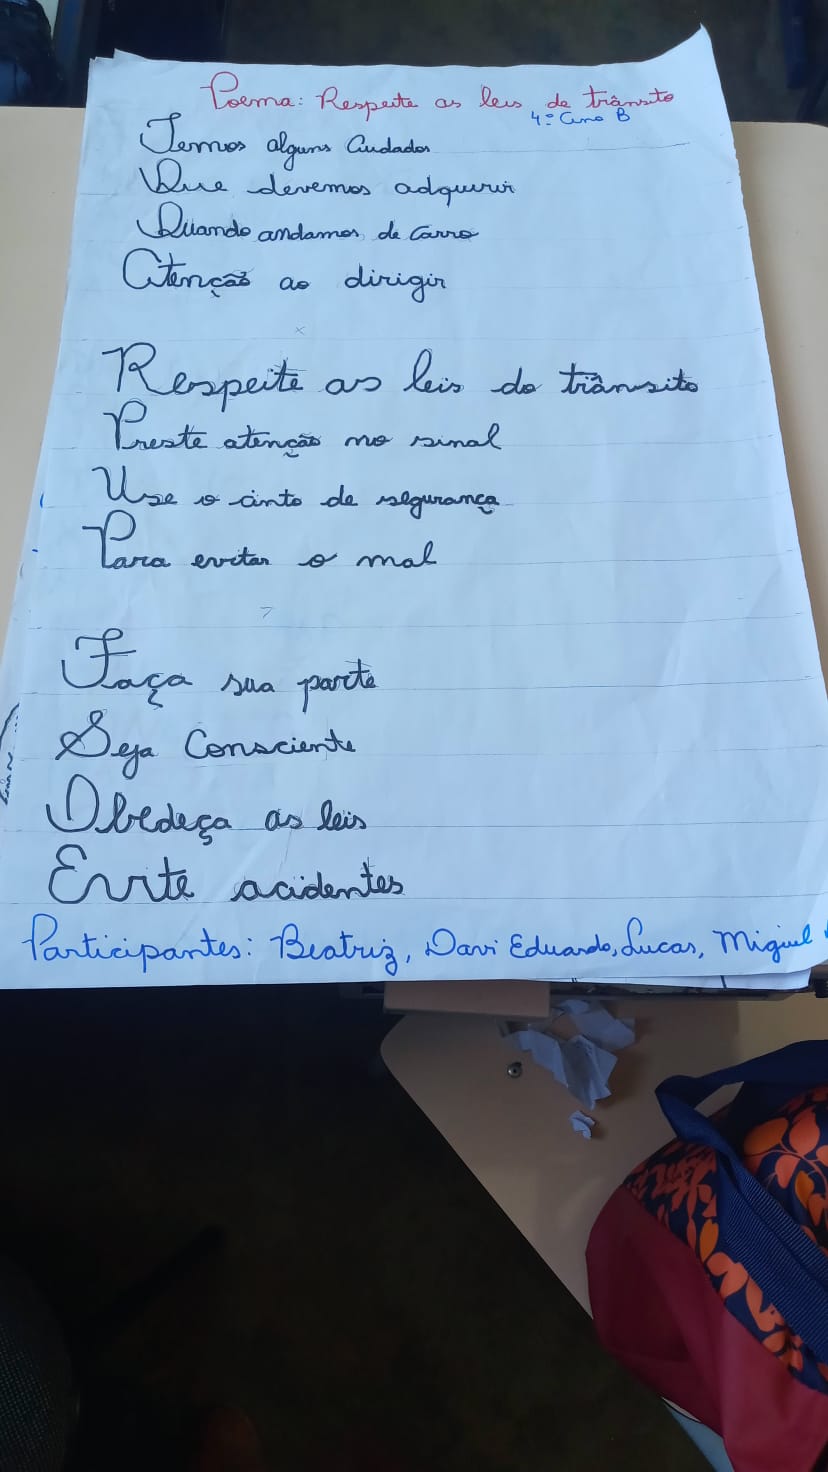 Poema: Respeite as leis de trânsito
4º Ano B
Temos alguns Cuidados
Que devemos adquirir
Quando andamos de Carro
Atenção ao dirigir
Respeite as leis do trânsito
Preste atenção no sinal
Use o cinto de segurança
Para evitar o mal
Faça sua parte
Seja Consciente
Obedeça as leis
Evite acidentes
Participantes: Beatriz, Davi Eduardo, Lucas, Miguel